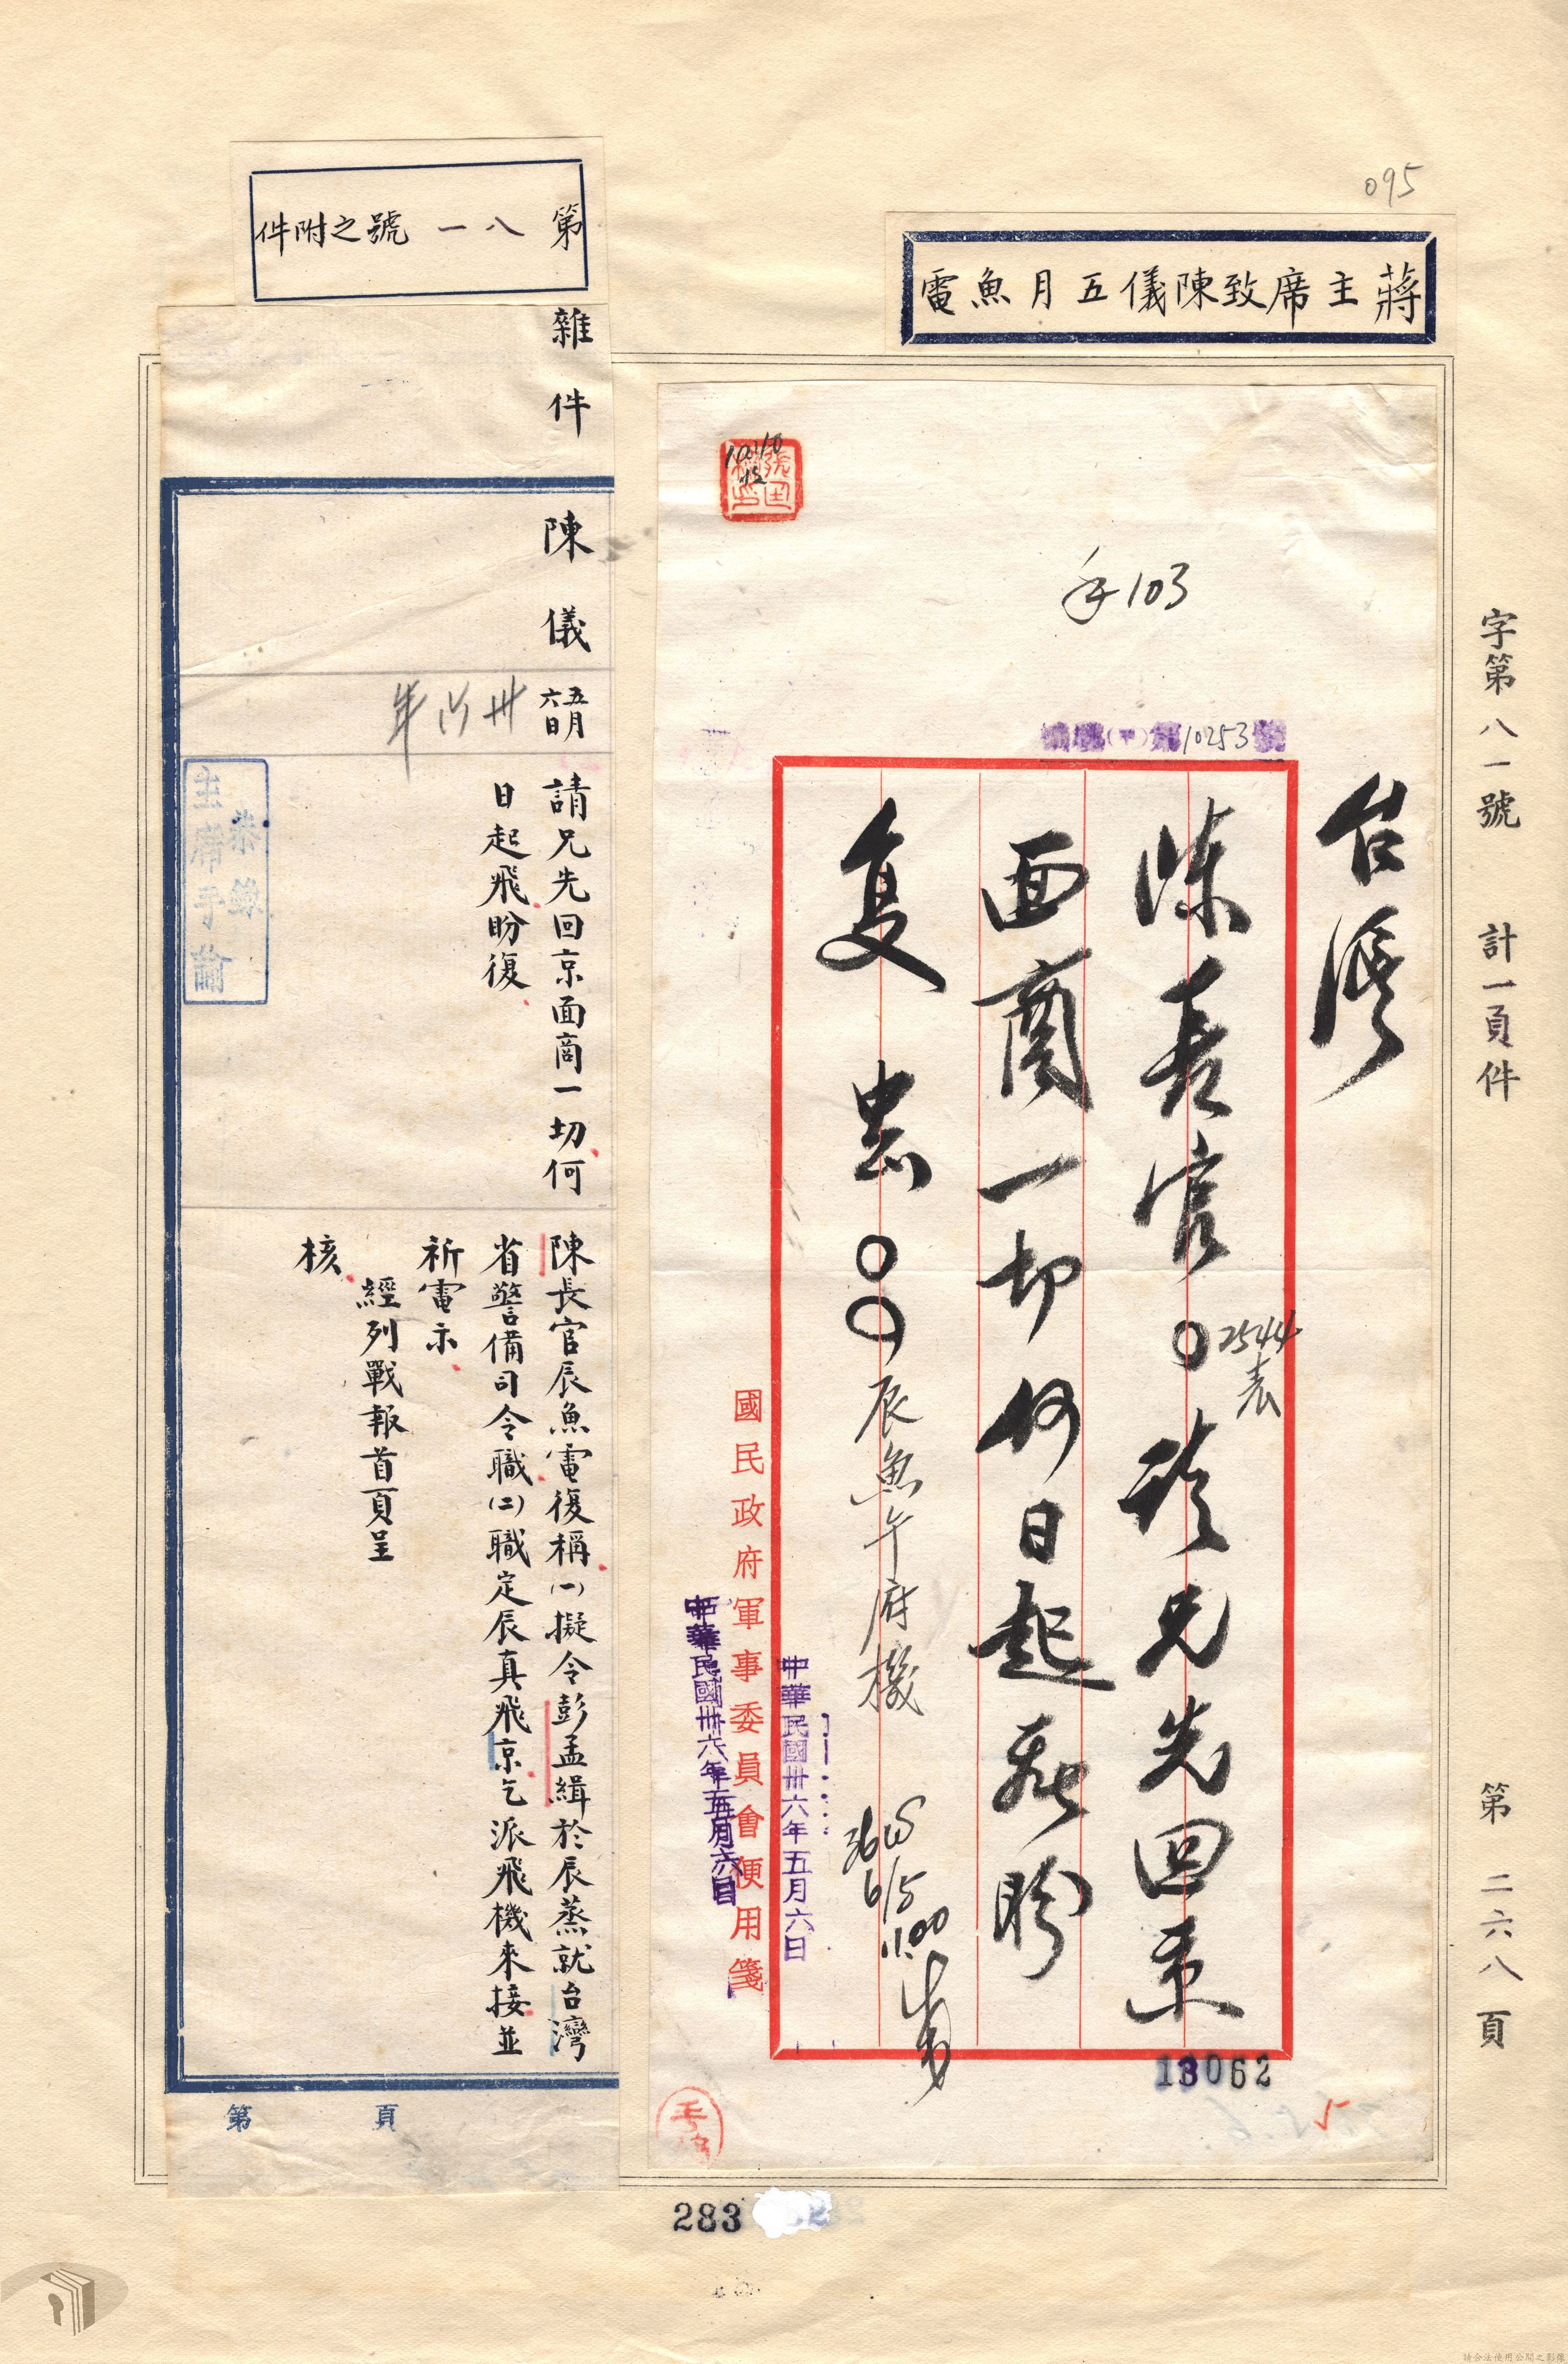 095
蔣主席致陳儀五月魚電
字第八一號　計一頁件　第二六八頁
手103
10253
台灣
陳長官。請兄先回京
2544
表
面商一切何日起飛盼
复 中正。。辰魚午府機
36
6/5
11.00
中華民國卅六年五月六日
國民政府軍事委員會便用箋
中華民國卅六年五月六日
13062
5
第八一號之附件
雜件
陳儀
五月六日
卅六年
請兄先回京面商一切何
日起飛盼復
陳長官辰魚電復稱(一)擬令彭孟緝於辰蒸就台灣
省警備司令職(二)職定辰真飛京乞派飛機來接並
祈電示
經列戰報首頁呈
核
恭錄
主席手諭
第　頁
283
請合法使用公開之影像